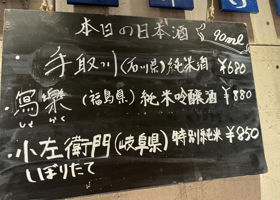 本日の日本酒 90ml
手取川(石川県)純米酒 ¥680
・寫樂(福島県)純米吟醸酒 ¥880
しゃらく
・小左衛門(岐阜県)特別純米 ¥850
しぼりたて